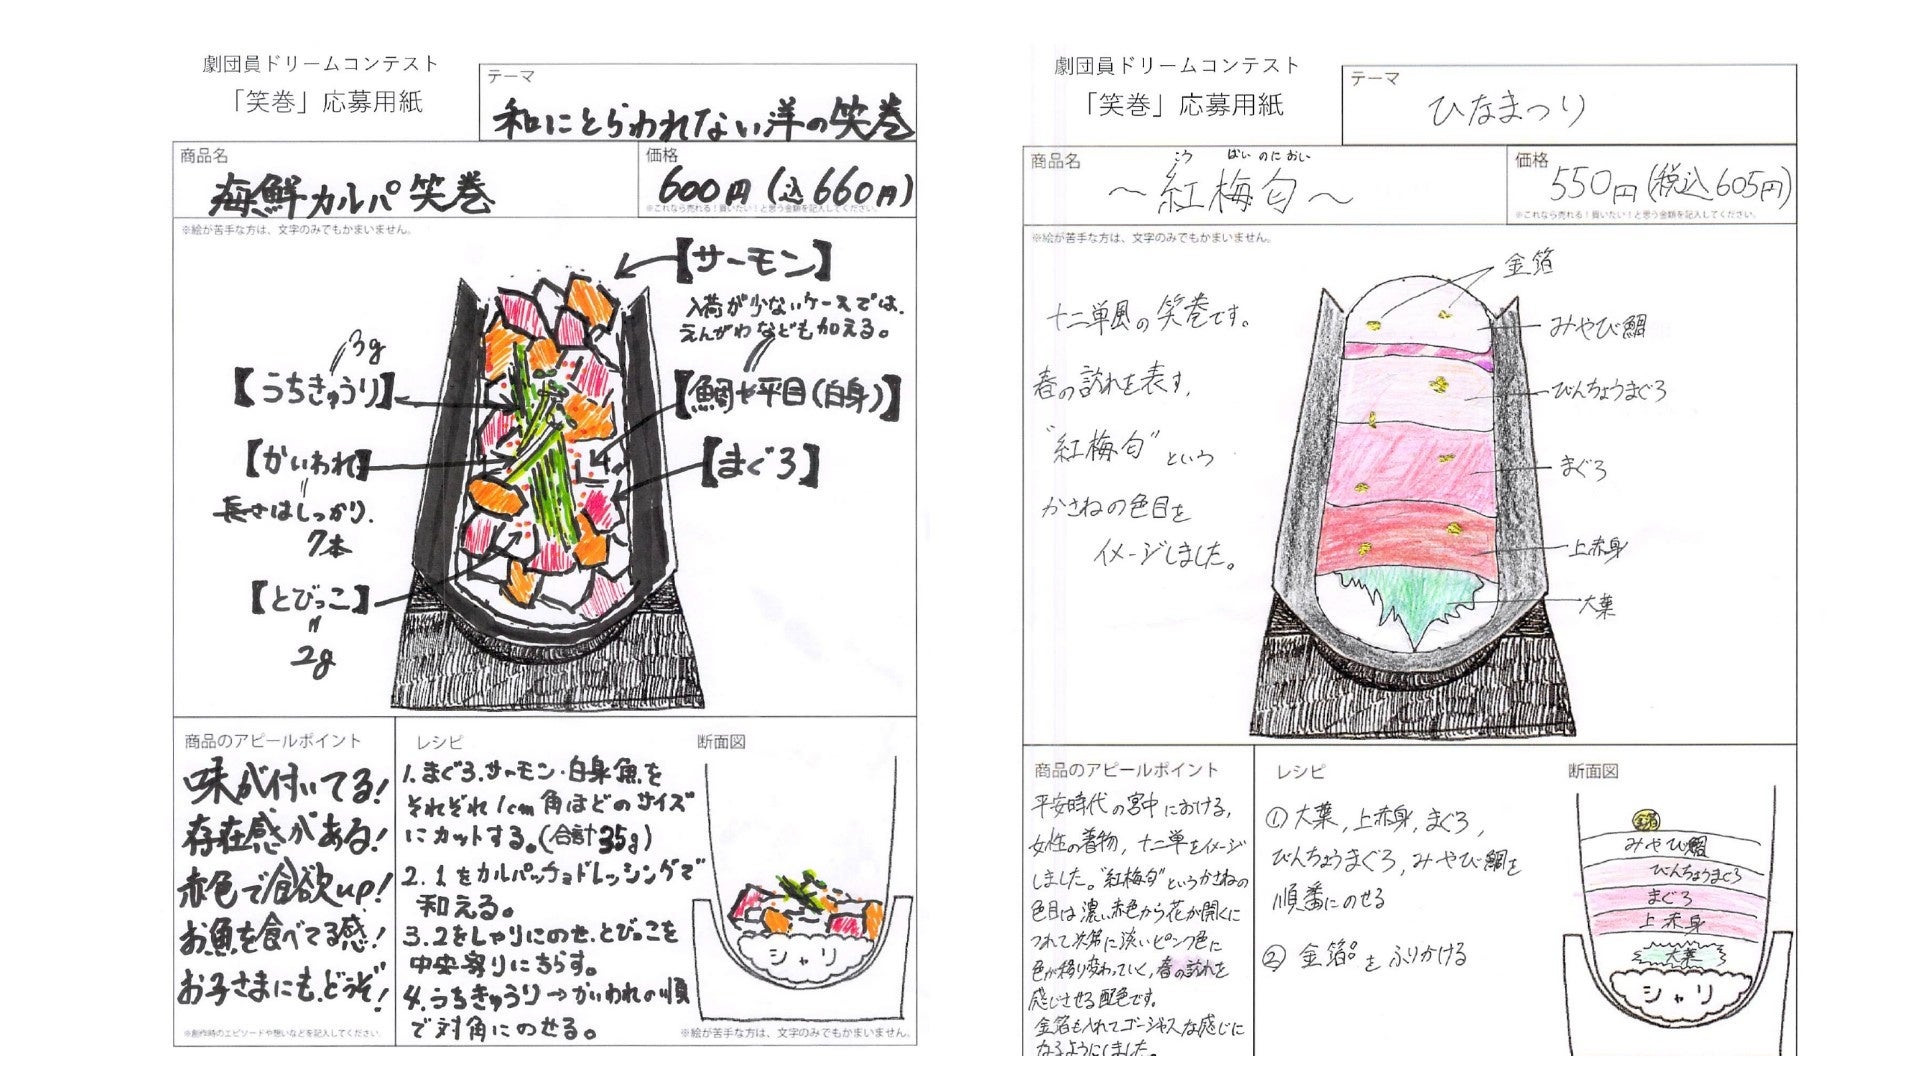 劇団員ドリームコンテスト
「笑巻」応募用紙
テーマ
和にとらわれない洋の笑巻
商品名
海鮮カルパ笑巻
価格
600円(込660円)
※これなら売れる！買いたい！と思う金額を記入してください。
※絵が苦手な方は、文字のみでもかまいません。
【サーモン】
入荷が少ないケースでは、
えんがわなども加える。
3g
【うちきゅうり】
【鯛や平目(白身)】
【かいわれ】
【まぐろ】
長さはしっかり、
7本
【とびっこ】
2g
商品のアピールポイント
味が付いてる!
存在感がある!
赤色で食欲up!
お魚を食べてる感!
お子さまにも、どうぞ!
※創作時のエピソードや想いなどを記入してください。
レシピ
1.まぐろ、サーモン・白身魚を
それぞれ1cm角ほどのサイズ
にカットする。(合計35g)
2.1をカルパッチョドレッシングで
和える。
3.2をしゃりにのせ、とびっこを
中央寄りにちらす。
4.うちきゅうり→かいわれの順
で対角にのせる。
断面図
シャリ
※絵が苦手な方は、文字のみでもかまいません。
劇団員ドリームコンテスト
「笑巻」応募用紙
テーマ
ひなまつり
商品名
こう ばい のにおい
～紅梅匂～
価格
550円(税込605円)
※これなら売れる！買いたい！と思う金額を記入してください。
※絵が苦手な方は、文字のみでもかまいません。
十二単風の笑巻です。
春の訪れを表す、
"紅梅匂"という
かさねの色目を
イメージしました。
金箔
みやび鯛
びんちょうまぐろ
まぐろ
上赤身
大葉
商品のアピールポイント
平安時代の宮中における、
女性の着物、十二単をイメージ
しました。"紅梅匂"というかさねの
色目は濃い赤色から花が開くに
つれて次第に淡いピンク色に
色が移り変わっていく、春の訪れを
感じさせる配色です。
金箔も入れてゴージャスな感じに
なるようにしました。
レシピ
①大葉、上赤身、まぐろ、
びんちょうまぐろ、みやび鯛を
順番にのせる
②金箔をふりかける
断面図
金箔
みやび鯛
びんちょうまぐろ
まぐろ
上赤身
大葉
シャリ